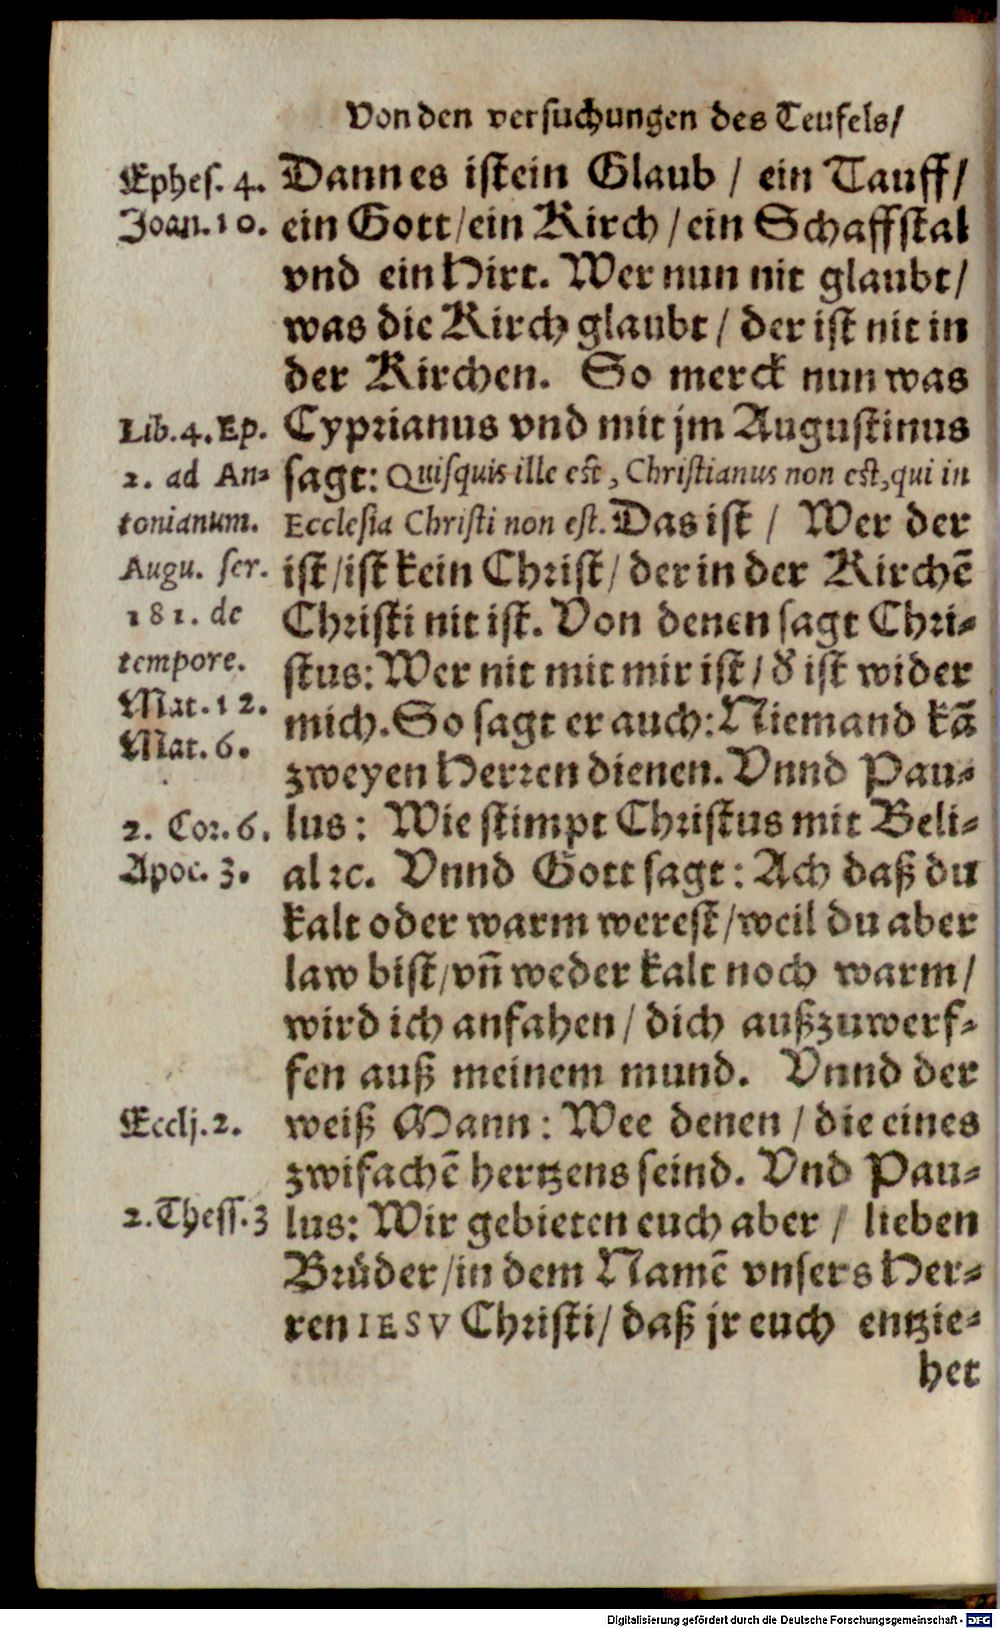 Von den versuchungen des Teufels/
Ephes. 4.
Joan. 10.
Lib. 4. Ep.
2. ad An=
tonianum.
Augu. ser.
181. de
tempore.
Mat. 12.
Mat. 6.
2. Cor. 6.
Apoc. 3.
Ecclj. 2.
2. Thess. 3
Dann es ist ein Glaub / ein Tauff/
ein Gott/ein Kirch / ein Schaffstal
vnd ein Hirt. Wer nun nit glaubt/
was die Kirch glaubt / der ist nit in
der Kirchen. So merck nun was
Cyprianus vnd mit jm Augustinus
sagt: Quisquis ille est, Christianus non est, qui in
Ecclesia Christi non est. Das ist / Wer der
ist/ist kein Christ/ der in der Kirchē
Christi nit ist. Von denen sagt Chri=
stus: Wer nit mit mir ist / d̕ ist wider
mich. So sagt er auch: Niemand kā
zweyen Herren dienen. Vnnd Pau=
lus: Wie stimpt Christus mit Beli=
al ꝛc. Vnnd Gott sagt: Ach daß du
kalt oder warm werest/weil du aber
law bist/vn̄ weder kalt noch warm/
wird ich anfahen / dich außzuwerf=
fen auß meinem mund. Vnnd der
weiß Mann: Wee denen / die eines
zwifachē hertzens seind. Vnd Pau=
lus: Wir gebieten euch aber / lieben
Brüder/in dem Namē vnsers Her=
ren IESV Christi/ daß jr euch entzie=
het
Digitalisierung gefördert durch die Deutsche Forschungsgemeinschaft - DFG